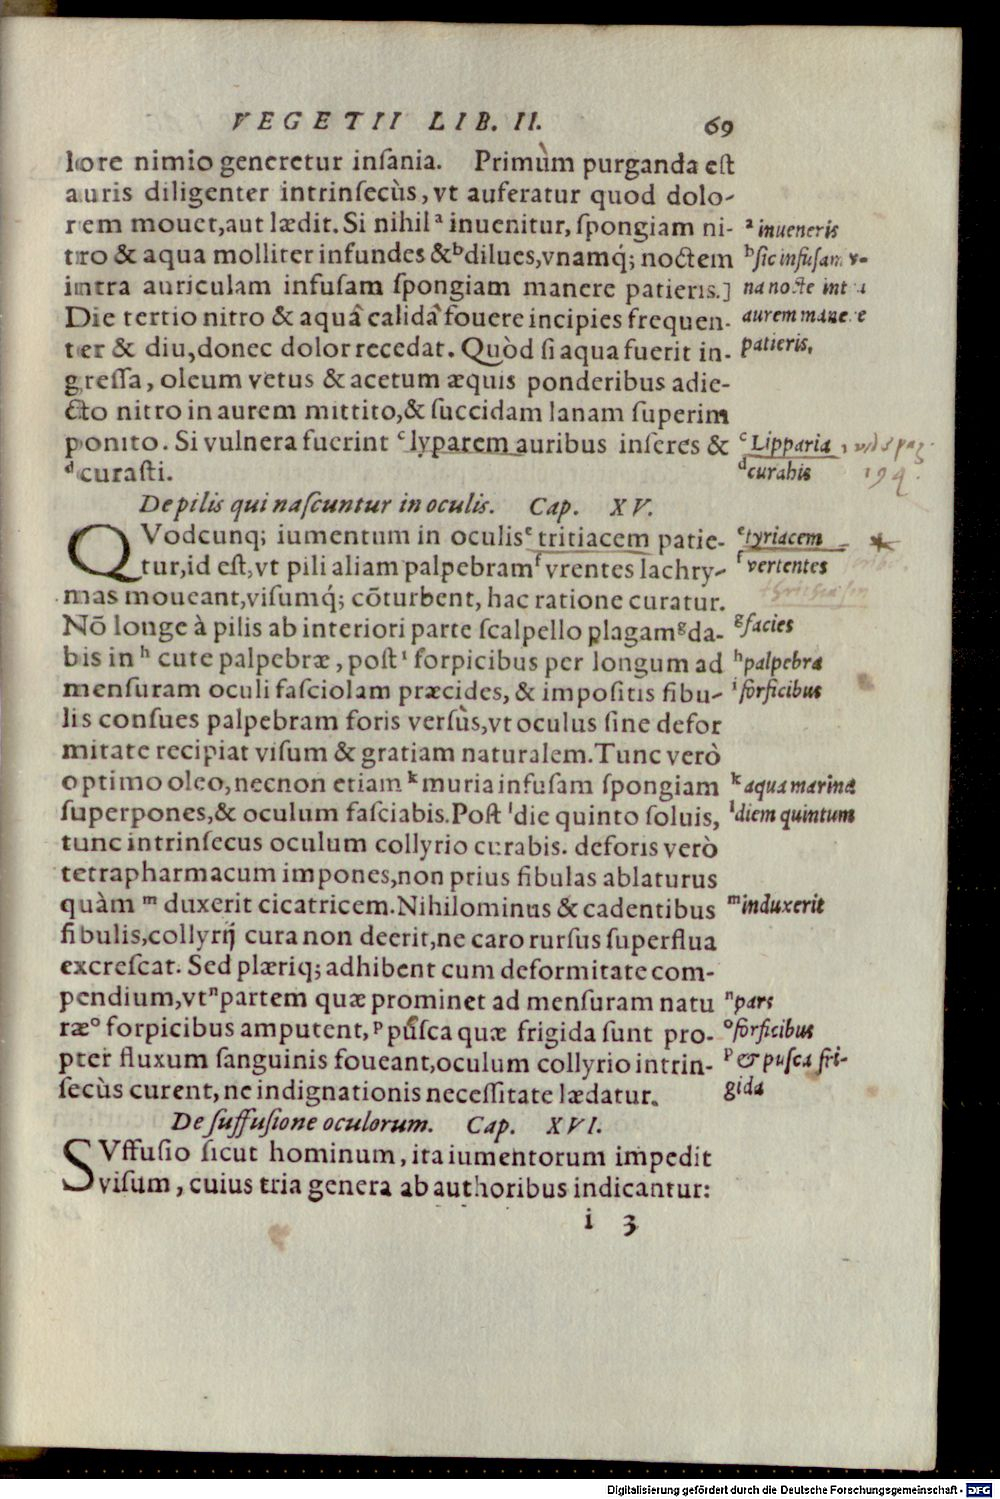 VEGETII LIB. II. 69
lore nimio generetur insania. Primùm purganda est
auris diligenter intrinsecùs, vt auferatur quod dolo-
rem mouet, aut lædit. Si nihil ᵃ inuenitur, spongiam ni-
tro & aqua molliter infundes & ᵇ dilues, vnamq́; noctem
intra auriculam infusam spongiam manere patieris.]
Die tertio nitro & aquâ calidâ fouere incipies frequen-
ter & diu, donec dolor recedat. Quòd si aqua fuerit in-
gressa, oleum vetus & acetum æquis ponderibus adie-
cto nitro in aurem mittito, & succidam lanam superim
ponito. Si vulnera fuerint ᶜ lyparem auribus inseres &
ᵈ curasti.
ᵃ inueneris
ᵇ sic infusam v-
na nocte intra
aurem manere
patieris.
ᶜ Lipparia, vid pag.
194.
ᵈ curabis
De pilis qui nascuntur in oculis. Cap. XV.
QVodcunq; iumentum in oculis ᵉ tritiacem patie-
tur, id est, vt pili aliam palpebram ᶠ vrentes lachry-
mas moueant, visumq́; cōturbent, hac ratione curatur.
Nō longe à pilis ab interiori parte scalpello plagam ᵍ da-
bis in ʰ cute palpebræ, post ⁱ forpicibus per longum ad
mensuram oculi fasciolam præcides, & impositis fibu-
lis consues palpebram foris versùs, vt oculus sine defor
mitate recipiat visum & gratiam naturalem. Tunc verò
optimo oleo, necnon etiam ᵏ muria infusam spongiam
superpones, & oculum fasciabis. Post ˡ die quinto soluis,
tunc intrinsecus oculum collyrio curabis. deforis verò
tetrapharmacum impones, non prius fibulas ablaturus
quàm ᵐ duxerit cicatricem. Nihilominus & cadentibus
fibulis, collyrij cura non deerit, ne caro rursus superflua
excrescat. Sed plæriq; adhibent cum deformitate com-
pendium, vt ⁿ partem quæ prominet ad mensuram natu
ræ ᵒ forpicibus amputent, ᵖ pusca quæ frigida sunt pro-
pter fluxum sanguinis foueant, oculum collyrio intrin-
secùs curent, ne indignationis necessitate lædatur.
ᵉ tyriacem *
ᶠ vertentes
ᵍ facies
ʰ palpebra
ⁱ forficibus
ᵏ aqua marina
ˡ diem quintum
ᵐ induxerit
ⁿ pars
ᵒ forficibus
ᵖ & pusca fri-
gida
De suffusione oculorum. Cap. XVI.
SVffusio sicut hominum, ita iumentorum impedit
visum, cuius tria genera ab authoribus indicantur:
i 3
Digitalisierung gefördert durch die Deutsche Forschungsgemeinschaft - DFG